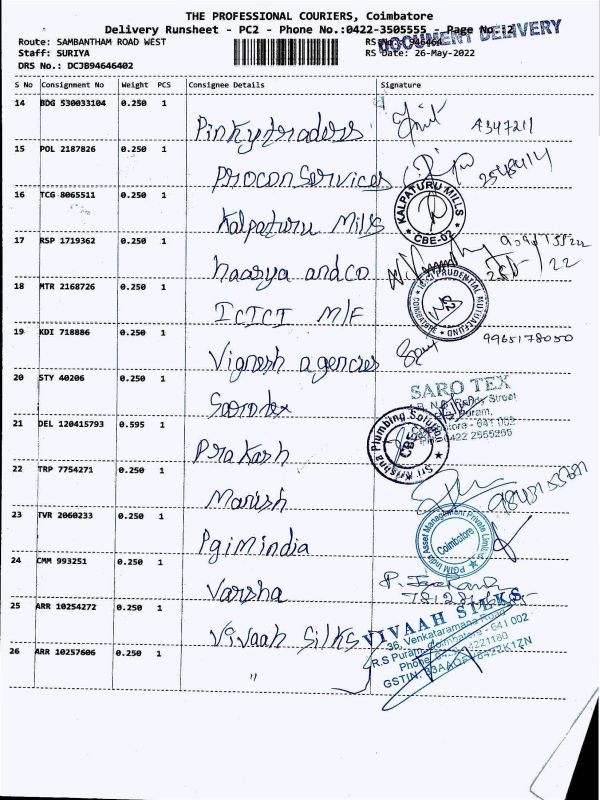 THE PROFESSIONAL COURIERS, Coimbatore
Delivery Runsheet - PC2 - Phone No.:0422-3505555 - Page No.:2
DOCUMENT DELIVERY
Route: SAMBANTHAM ROAD WEST
Staff: SURIYA RS Date: 26-May-2022
DRS No.: DCJB94646402
S No Consignment No Weight PCS Consignee Details Signature
14 BDG 530033104 0.250 1
Pinkytraders
15 POL 2187826 0.250 1
Procon Services
16 TCG 8065511 0.250 1
KALPATURU MILLS
★ CBE-02 ★
Kalpaturu Mills
17 RSP 1719362 0.250 1
haarya and co
18 MTR 2168726 0.250 1
ICICI PRUDENTIAL MUTUAL FUND
COIMBATORE
ICICI M/F
19 KDI 718886 0.250 1
Vignesh agencies 9965178050
20 STY 40206 0.250 1
SARO TEX
Sarotex
21 DEL 120415793 0.595 1
Sri Krishna Plumbing Solution
CBE
Prakash
22 TRP 7754271 0.250 1
Manish
23 TVR 2060233 0.250 1
PGIM India Asset Management Private Limited
Coimbatore
Pgim india
24 CMM 993251 0.250 1
Varsha
25 ARR 10254272 0.250 1
VIVAAH SILKS
36, Venkataramana Road
R.S Puram, Coimbatore - 641 002
Vivaah Silks
26 ARR 10257606 0.250 1
"